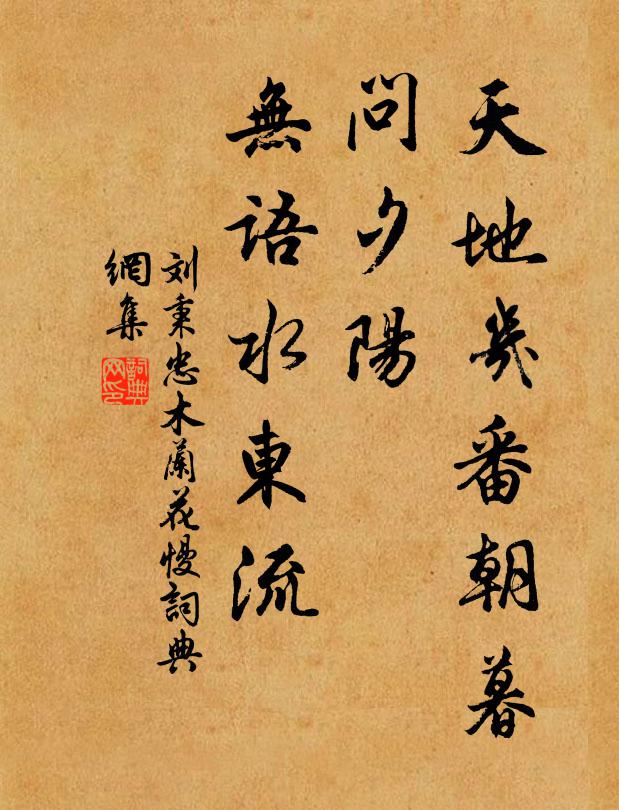 天地幾番朝暮
問夕陽
無語水東流
刘秉忠木蘭花慢詞典
網集
詞典网印